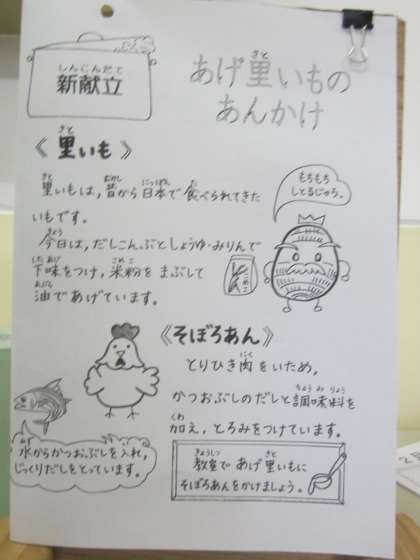 新献立
あげ里いもの
あんかけ
《里いも》
里いもは,昔から日本で食べられてきた
いもです。
今日は,だしこんぶとしょうゆ・みりんで
下味をつけ,米粉をまぶして
油であげています。
もちもち
してるじゃろ。
こめこ
《そぼろあん》
とりひき肉をいため,
かつおぶしのだしと調味料を
加え,とろみをつけています。
水からかつおぶしを入れ,
じっくりだしをとっています。
教室であげ里いもに
そぼろあんをかけましょう。